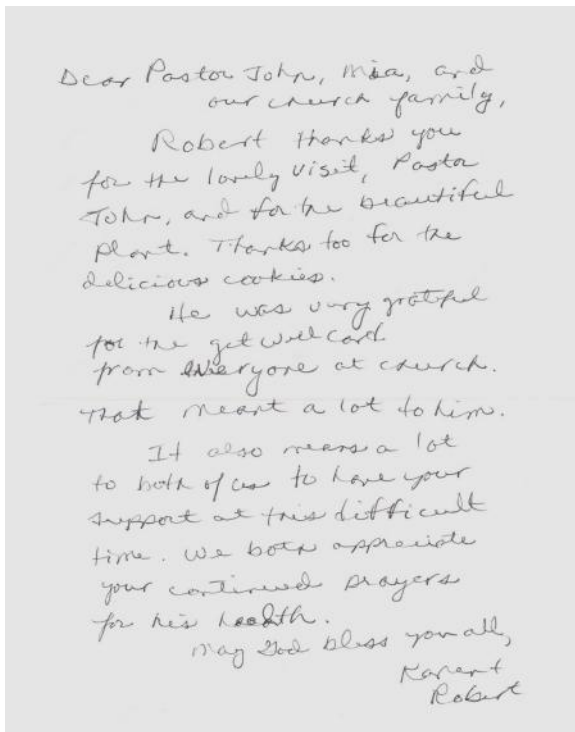 Dear Pastor John, Mia, and
our church family,
Robert thanks you
for the lovely visit, Pastor
John, and for the beautiful
plant. Thanks too for the
delicious cookies.
He was very grateful
for the get well card
from everyone at church.
That meant a lot to him.
It also means a lot
to both of us to have your
support at this difficult
time. We both appreciate
your continued prayers
for his health.
May God bless you all,
Karen +
Robert